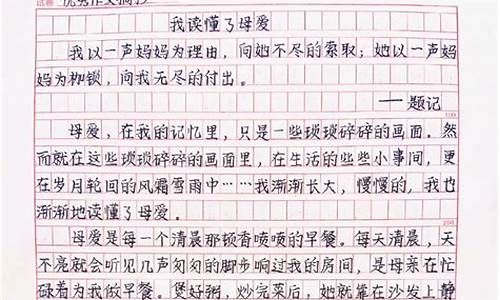 试卷 优秀作文摘抄
我读懂了母爱
我以一声妈妈为理由，向她不尽的索取；她以一声妈
妈为枷锁，向我无尽的付出。
——题记
母爱，在我的记忆里，只是一些琐琐碎碎的画面。然
而就在这些琐琐碎碎的画面里，在生活的些些小事间，更
在岁月轮回的风霜雪雨中……我渐渐长大，慢慢的，我也
渐渐地读懂了母爱。
母爱是每一个清晨那顿香喷喷的早餐。每天清晨，天
不亮就会听见几声匆匆的脚步响过我的房间，是母亲在忙
碌着为我做早餐。煲好粥，炒完菜后，她就靠在沙发上静